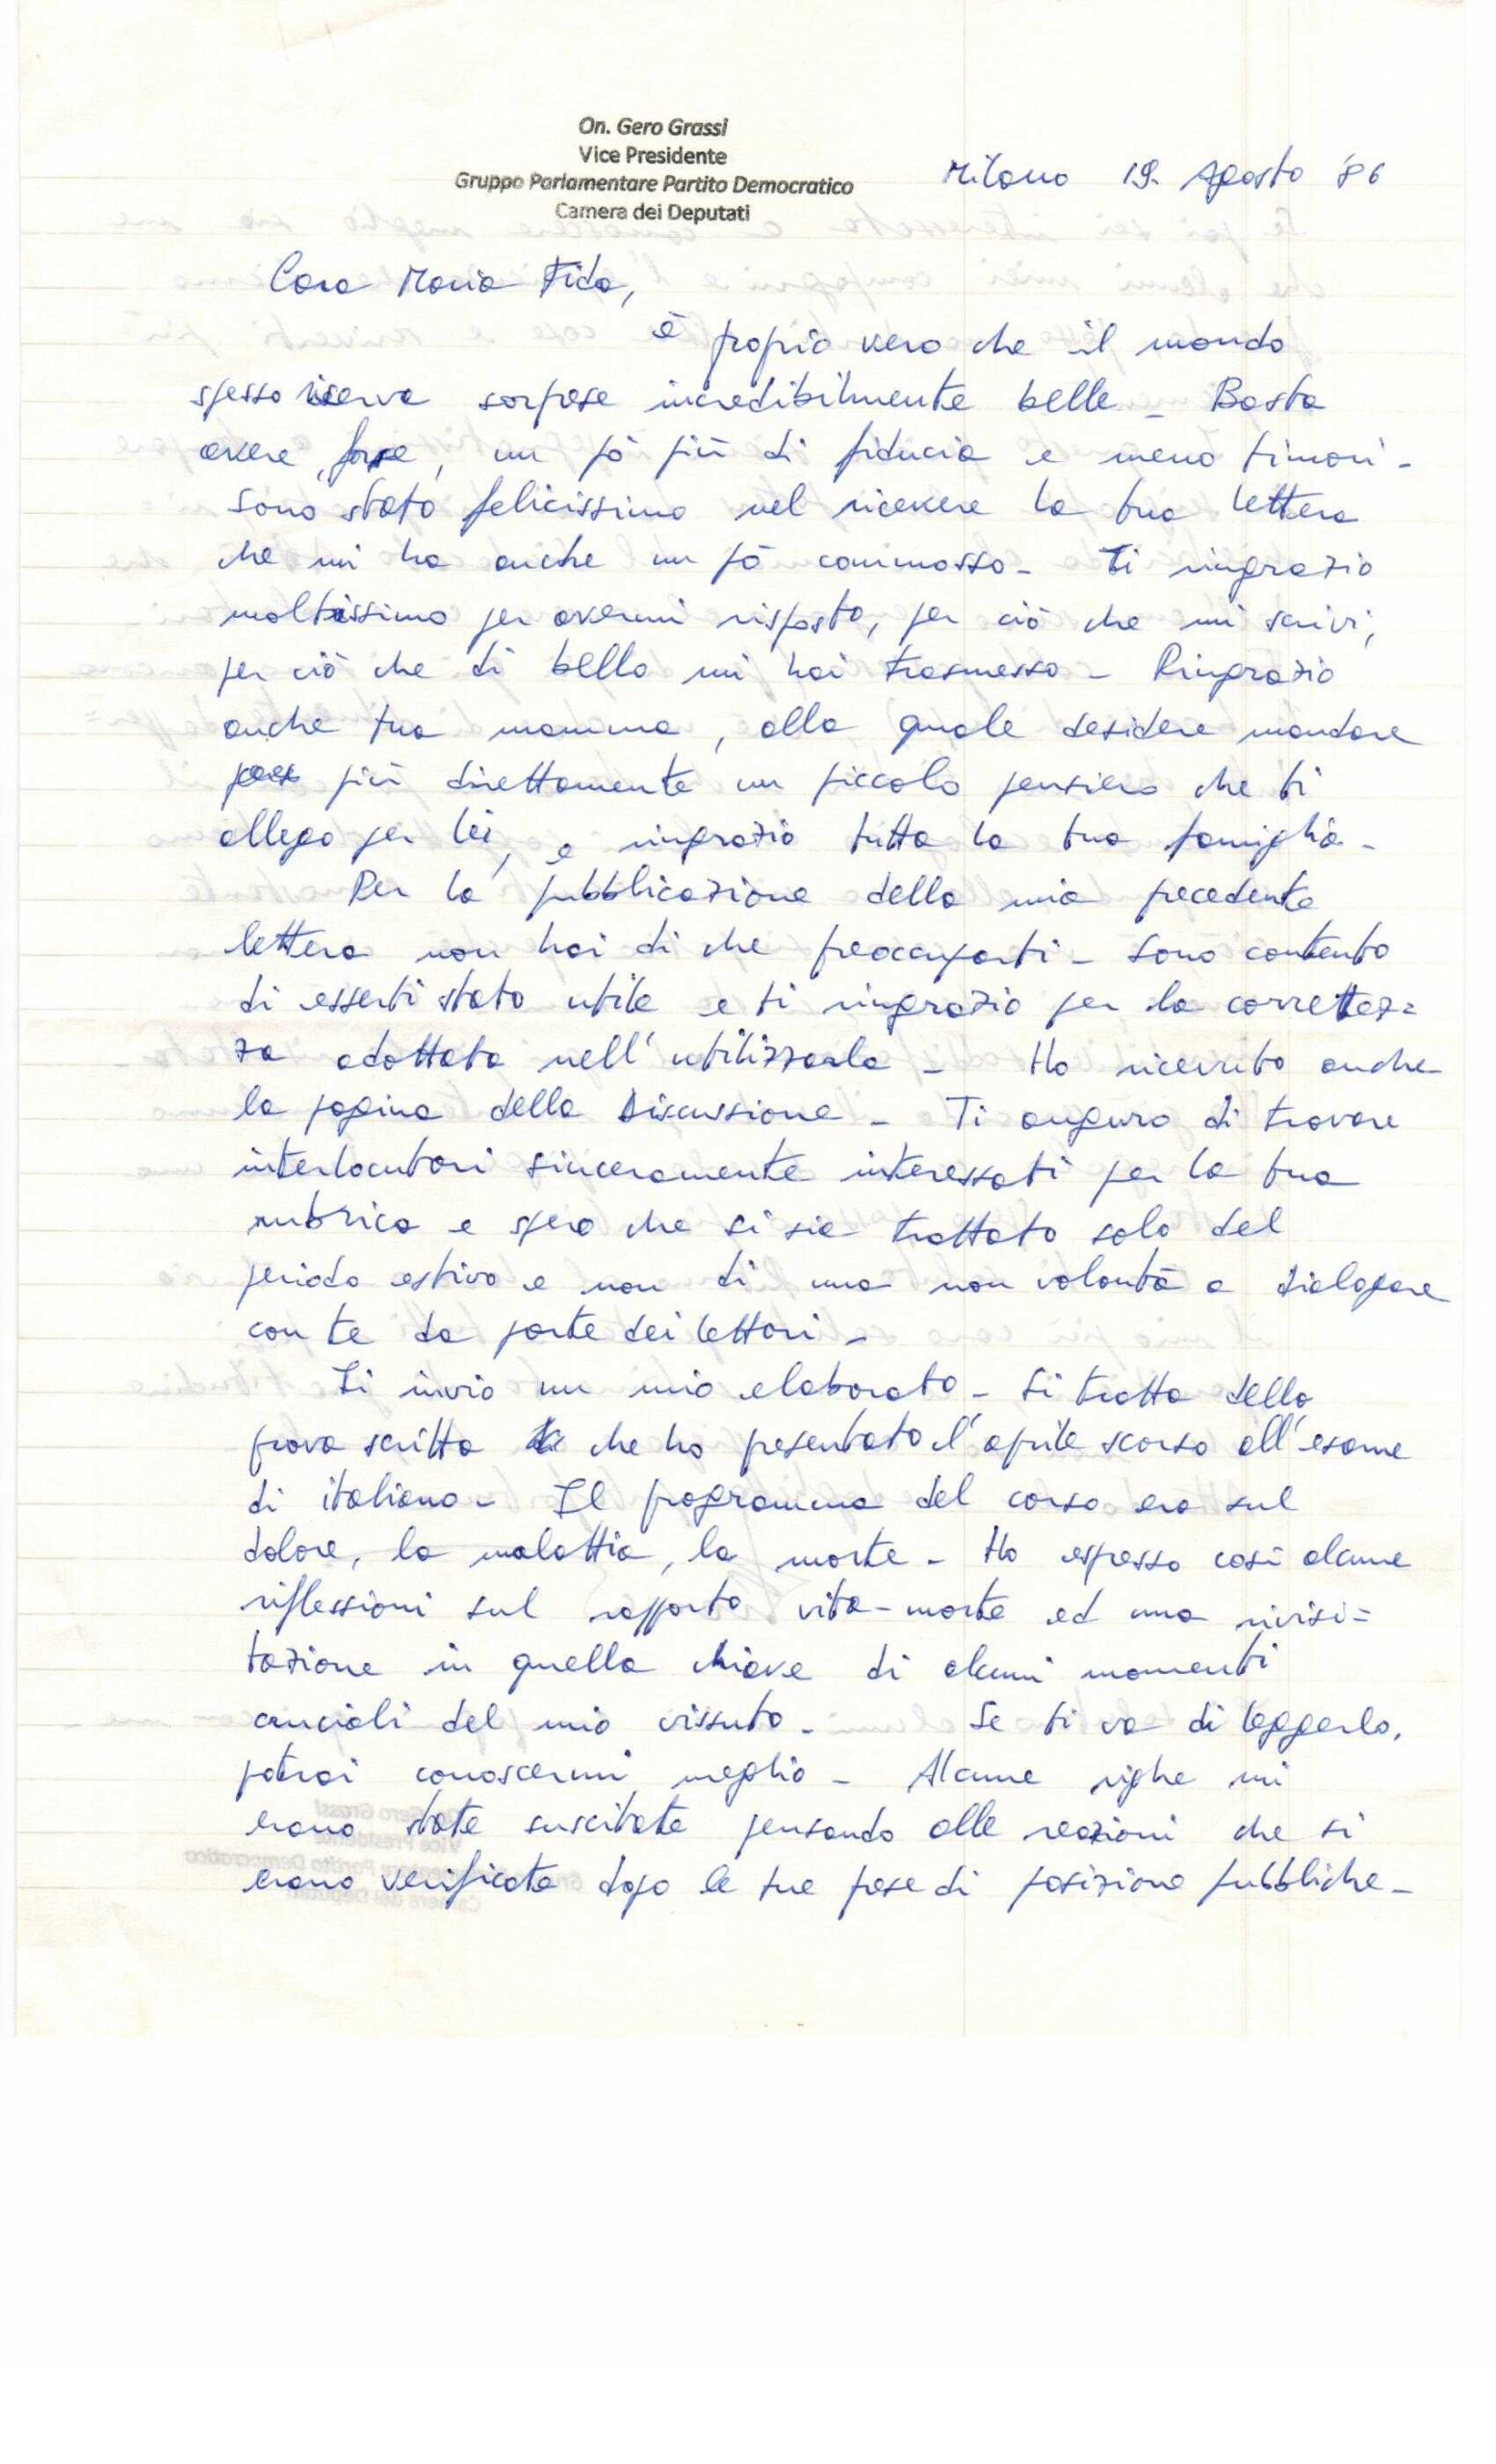 On. Gero Grassi
Vice Presidente
Gruppo Parlamentare Partito Democratico
Camera dei Deputati
Milano 19. Agosto '86
Cara Maria Fida,
è proprio vero che il mondo
spesso riserva sorprese incredibilmente belle - Basta
avere, forse, un pò più di fiducia e meno timori -
Sono stato felicissimo nel ricevere la tua lettera
che mi ha anche un pò commosso - Ti ringrazio
moltissimo per avermi risposto, per ciò che mi scrivi,
per ciò che di bello mi hai trasmesso - Ringrazio
anche tua mamma, alla quale desidero mandare
più direttamente un piccolo pensiero che ti
allego per lei, e ringrazio tutta la tua famiglia -
Per la pubblicazione della mia precedente
lettera non hai di che preoccuparti - Sono contento
di esserti stato utile e ti ringrazio per la correttez=
za adottata nell'utilizzarla - Ho ricevuto anche
la pagina della Discussione - Ti auguro di trovare
interlocutori sinceramente interessati per la tua
rubrica e spero che si sia trattato solo del
periodo estivo e non di una non volontà a dialogare
con te da parte dei lettori -
Ti invio un mio elaborato - Si tratta della
prova scritta che ho presentato l'aprile scorso all'esame
di italiano - Il programma del corso era sul
dolore, la malattia, la morte - Ho espresso così alcune
riflessioni sul rapporto vita-morte ed una rivisi=
tazione in quella chiave di alcuni momenti
cruciali del mio vissuto - Se ti va di leggerlo,
potrai conoscermi meglio - Alcune righe mi
erano state suscitate pensando alle reazioni che si
erano verificate dopo le tue prese di posizione pubbliche -